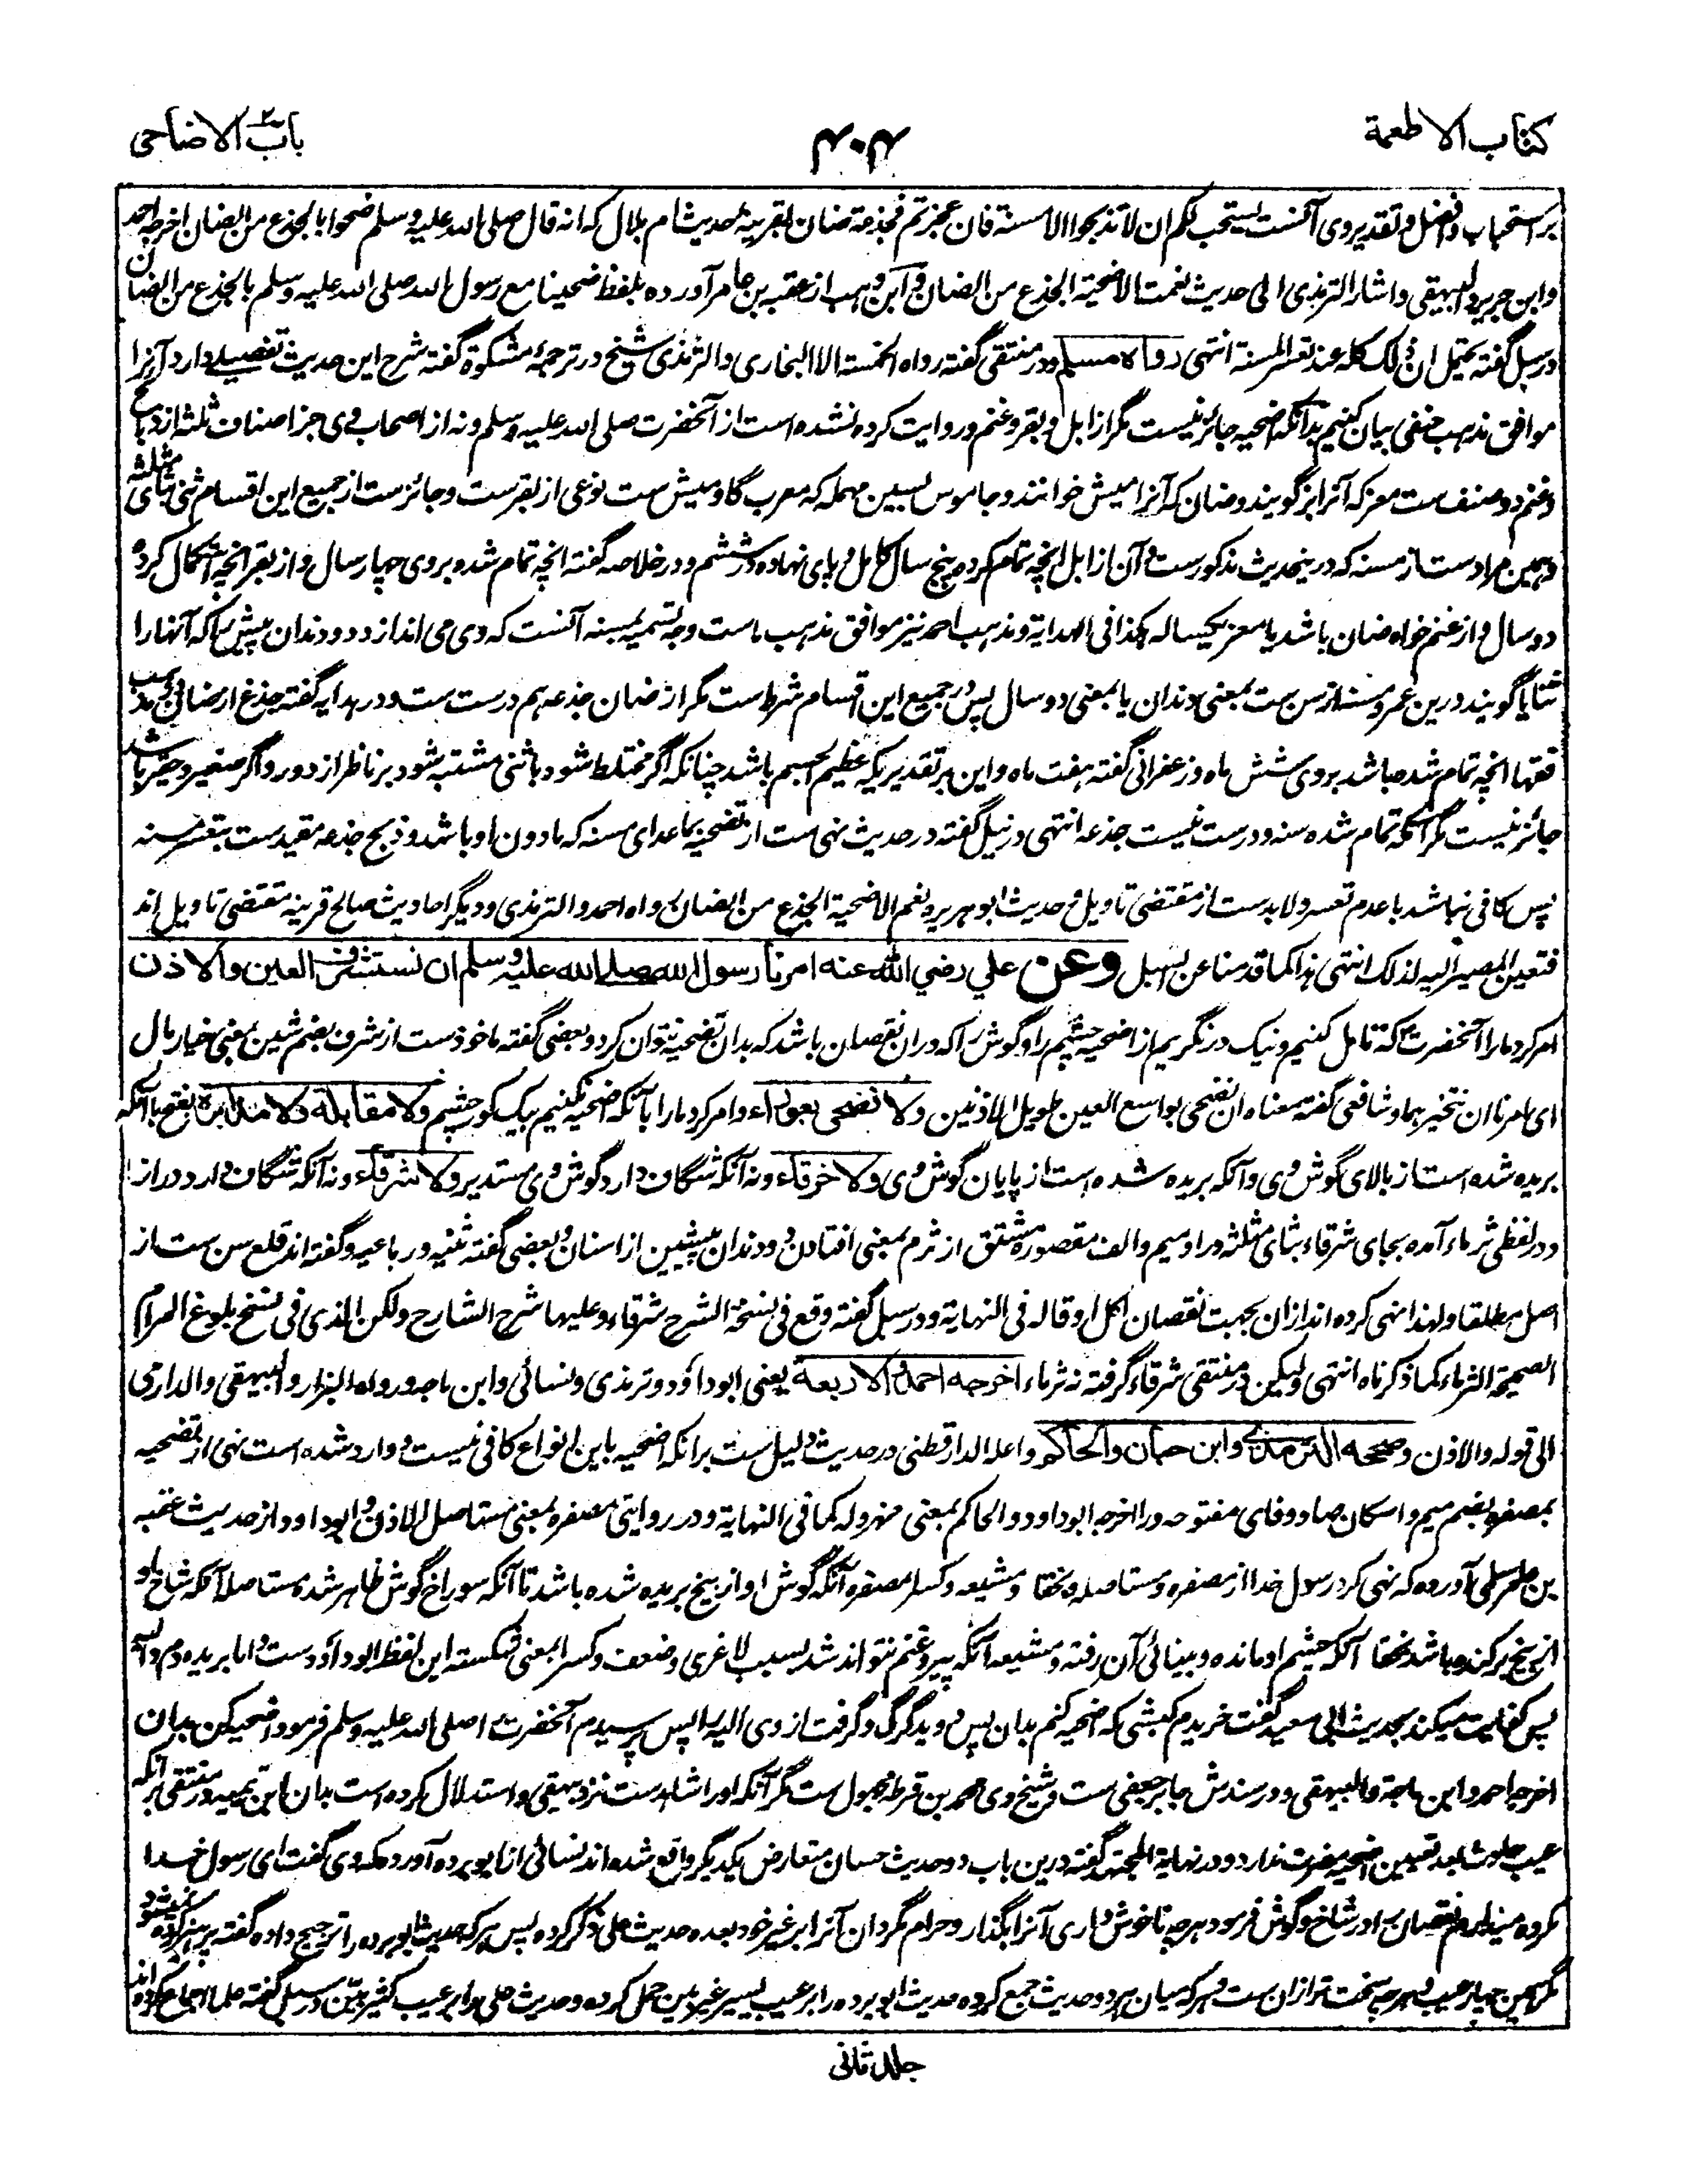 كتاب الاطعمة
باب الاضاحی
بر استحباب و فضل و تقدیر وی آنست یستحب لکم ان لا تذبحوا الا مسنة فان عجزتم فجذعة ضان بقرینهٔ حدیث ام بلال که انه قال صلی الله علیه وسلم ضحوا بالجذع من الضان اخرجه احمد
وابن جریر و البیهقی و اشار الترمذی الی حدیث نعمت الاضحیة الجذع من الضان و ابن وهب از عقبه بن عامر آورده بلفظ ضحینا مع رسول الله صلی الله علیه وسلم بالجذع من الضان
درسبل گفته یحتمل ان ذلک کله عند تعسر المسنة انتهی رواه مسلم ودر منتقی گفته رواه الخمسة الا البخاری والترمذی شیخ در ترجمهٔ مشکوة گفته شرح این حدیث تفصیلے دارد آنرا
موافق مذهب حنفی بیان کنیم بدآنکه اضحیه جائز نیست مگر از ابل و بقر و غنم و روایت کرده نشده است از آنحضرت صلی الله علیه وسلم و نه از اصحاب وی جز اصناف ثلثه از ذبائح
و غنم دو صنف ست معز که آنرا بز گویند و ضان که آنرا میش خوانند و جاموس بسین مهمله که معرب گاومیش ست نوعی از بقرست و جائزست از جمیع این اقسام ثنی بثای مثلثه
و همین مرادست از مسنه که درین حدیث مذکورست و آن از ابل انچه تمام کرده پنج سال کامل و پای نهاده در ششم و در خلاصه گفته انچه تمام شد و بروی چهار سال و از بقر انچه اکمال کرده
دو سال و از غنم خواه ضان باشد یا معز یکساله هکذا فی الهدایة و مذهب احمد نیز موافق مذهب ماست وجه تسمیه بمسنه آنست که وی می اندازد دو دندان پیش را که آنها را
ثنایا گویند درین عمر و مسنه از سن ست بمعنی دندان یا بمعنی دو سال پس در جمیع این اقسام شرط ست مگر از ضان جذعه هم درست ست و در هدایه گفته جذع از ضان در مذهب
فقها انچه تمام شده باشد بروی شش ماه و زعفرانی گفته هفت ماه و این بر تقدیریکه عظیم الجسم باشد چنانکه اگر مختلط شود باثنی مشتبه شود بر ناظر از دور و اگر صغیر و حقیر باشد
جائز نیست مگر آنکه تمام شده سنه و درست نیست جذعه انتهی در نیل گفته در حدیث نهی ست از تضحیه بماعدای مسنه که مادون او باشد و ذبح جذعه مقیدست بتعسر مسنه
پس کافی نباشد با عدم تعسر و لا بدست از مقتضی تاویل و حدیث ابو هریره نعم الاضحیة الجذع من الضان رواه احمد والترمذی و دیگر احادیث صالح قرینه مقتضی تاویل اند
فتعین المصیر الیه لذلک انتهی هذا کما قدمنا عن السبل وعن علي رضي الله عنه امرنا رسول الله صلے الله علیه وسلم ان نستشرف العین والاذن
امر کرد مارا آنحضرت که تامل کنیم و نیک در نگریم از اضحیه چشم را و گوش را که دران نقصان باشد که بدان تضحیه نتوان کرد و بعضی گفته ماخوذست از شرف بضم شین بمعنی خیار مال
ای امرنا ان نتخیرهما و شافعی گفته معناه ان نضحی بواسع العین طویل الاذنین ولا نضحی بعوراء و امر کرد مارا بآنکه اضحیه نکنیم بیک کور چشم ولا مقابلة ولا مدابرة بفتح با آنکه
بریده شده است از بالای گوش وی و آنکه بریده شده است از پایان گوش وی ولا خرقاء و نه آنکه شگاف دارد گوش وی مستدیر ولا شرقاء و نه آنکه شگاف دارد دراز
و در لفظی ثرماء آمده بجای شرقاء بثای مثلثه و را و میم و الف مقصوره مشتق از ثرم بمعنی افتادن دو دندان پیشین از اسنان و بعضی گفته ثنیه و رباعیه و گفته اند قلع سن ست از
اصل مطلقا و لهذا نهی کرده اند ازان بجهت نقصان اکل او قاله فی النهایة و در سبل گفته وقع فی نسخة الشرح شرقاء و علیها شرح الشارح ولکن الذی فی نسخ بلوغ المرام
الصحیحة الثرماء کما ذکرناه انتهی ولیکن در منتقی شرقاء گرفته نه ثرماء اخرجه احمد والاربعة یعنی ابوداؤد و ترمذی و نسائی و ابن ماجه و رواه البزار و البیهقی و الدارمی
الی قوله والاذن وصححه الترمذي وابن حبان والحاکم و اعله الدارقطنی در حدیث دلیل ست برانکه اضحیه باین انواع کافی نیست و وارد شده است نهی از تضحیه
بمصفره بضم میم و اسکان صاد و فای مفتوحه و را اخرجه ابوداود و الحاکم بمعنی مهزوله کما فی النهایة و در روایتی مصفره بمعنی مستاصل الاذن و ابوداود از حدیث عقبه
بن سلمی آورده که نهی کرد رسول خدا از مصفره و مستاصله و بخقا و مشیعه و کسرا مصفره آنکه گوش او از بیخ بریده شده باشد تا آنکه سوراخ گوش ظاهر شد و مستاصله آنکه شاخ او
از بیخ برکنده باشد و بخقا آنکه چشم او مانده و بینائی آن رفته و مشیعه آنکه پیرو غنم نتواند شد بسبب لاغری و ضعف و کسرا بمعنی شکسته این لفظ ابوداؤدست و اما بریده دم و الیه
پس کفایت میکند بحدیث ابی سعید گفت خریدم کبشی که اضحیه کنم بدان پس دوید گرگ و گرفت از وی الیه را پس پرسیدم آنحضرت را صلی الله علیه وسلم فرمود اضحیه کن بدان
اخرجه احمد و ابن ماجة و البیهقی و در سندش جابر جعفی ست و شیخ وی محمد بن قرظه مجهول ست مگر آنکه او را شاهدست نزد بیهقی و استدلال کرده است بدان ابن تیمیه در منتقی بر آنکه
عیب حادث بعد تعیین اضحیه مضرت ندارد و در نهایة المجتهد گفته درین باب دو حدیث حسان متعارض یکدیگر واقع شده اند نسائی از ابو برده آورده که وی گفت ای رسول خدا
مکروه میدارم نقصان را در شاخ و گوش فرمود هرچه ناخوش داری آنرا بگذار و حرام مگردان آنرا بر غیر خود بعده حدیث علی ذکر کرده پس هر که حدیث ابو برده را ترجیح داده گفته پرهیز کرده نمیشود
مگر همین چهار عیب و هرچه سخت تر ازان ست و هر که میان هر دو حدیث جمع کرده حدیث ابو برده را بر عیب یسیر غیر بین حمل کرده و حدیث علی را بر عیب کثیر بین در سبل گفته علما اجماع کرده اند
جلد ثانی